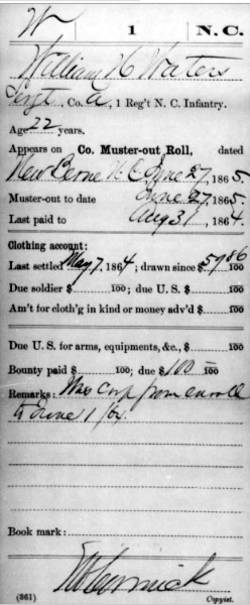 W | 1 | N.C.
William H Waters
Sergt, Co. A, 1 Reg't N. C. Infantry.
Age 22 years.
Appears on Co. Muster-out Roll, dated
New Berne N C June 27, 1865.
Muster-out to date June 27, 1865.
Last paid to Aug 31, 1864.
Clothing account:
Last settled May 7, 1864; drawn since $ 57 86/100
Due soldier $ 100; due U. S. $ 100
Am't for cloth'g in kind or money adv'd $ 100
Due U. S. for arms, equipments, &c., $ 100
Bounty paid $ 100; due $ 100 100
Remarks: Was Corp from enroll
to June 1/64
Book mark:
(361) Copyist.